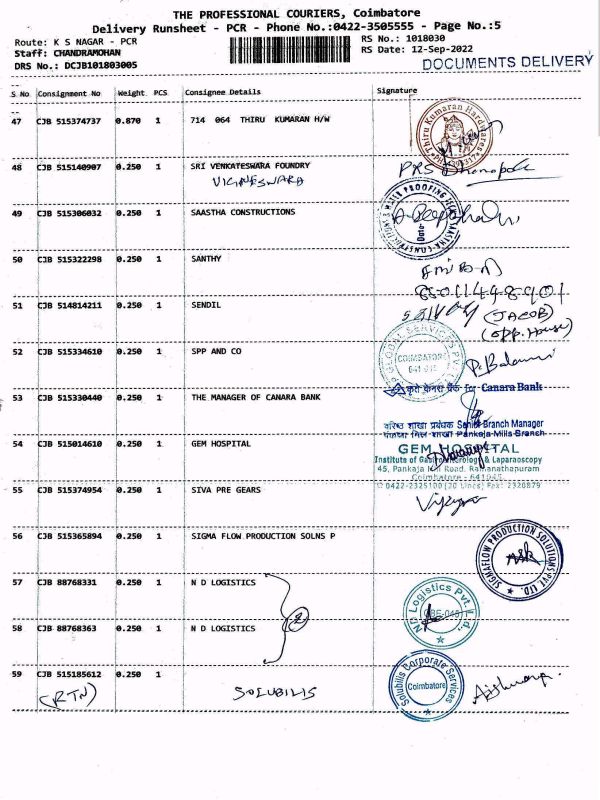 THE PROFESSIONAL COURIERS, Coimbatore
Delivery Runsheet - PCR - Phone No.:0422-3505555 - Page No.:5
Route: K S NAGAR - PCR
RS No.: 1018030
Staff: CHANDRAMOHAN
RS Date: 12-Sep-2022
DRS No.: DCJB101803005
DOCUMENTS DELIVERY
S No Consignment No Weight PCS Consignee Details Signature
47 CJB 515374737 0.870 1 714 064 THIRU KUMARAN H/W
Thiru Kumaran Hardwares
48 CJB 515140907 0.250 1 SRI VENKATESWARA FOUNDRY
VIGNESWARA
49 CJB 515306032 0.250 1 SAASTHA CONSTRUCTIONS
50 CJB 515322298 0.250 1 SANTHY
51 CJB 514814211 0.250 1 SENDIL
(JACOB)
(opp. House)
52 CJB 515334610 0.250 1 SPP AND CO
GLOBAL SERVICES PVT
COIMBATORE
P. Balamu
53 CJB 515330440 0.250 1 THE MANAGER OF CANARA BANK
कृते केनरा बैंक For Canara Bank
वरिष्ठ शाखा प्रबंधक Senior Branch Manager
Pankaja Mills Branch
54 CJB 515014610 0.250 1 GEM HOSPITAL
GEM HOSPITAL
Institute of Gastroenterology & Laparaoscopy
45, Pankaja Mill Road, Ramanathapuram
Coimbatore - 641045
0422-2325100 (20 Lines) Fax: 2320879
55 CJB 515374954 0.250 1 SIVA PRE GEARS
56 CJB 515365894 0.250 1 SIGMA FLOW PRODUCTION SOLNS P
SIGMAFLOW PRODUCTION SOLUTIONS PVT. LTD.
57 CJB 88768331 0.250 1 N D LOGISTICS
2
ND Logistics Pvt. Ltd.,
58 CJB 88768363 0.250 1 N D LOGISTICS
59 CJB 515185612 0.250 1
(RTN) SOLUBILIS
Solubilis Corporate Services
Coimbatore